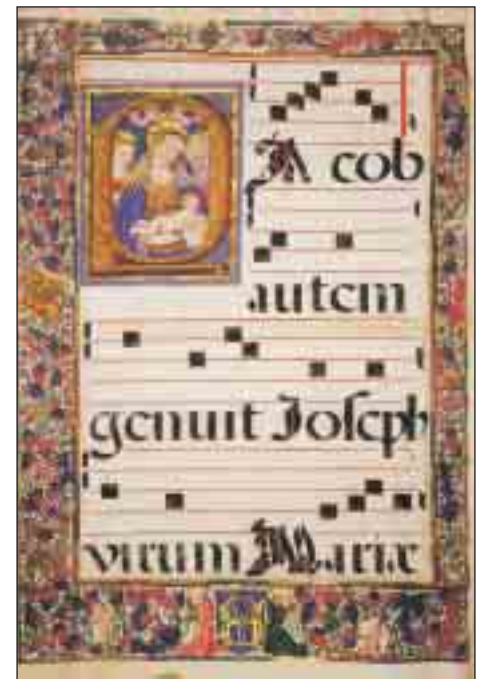 JA cob
autem
genuit Joſeph
virum Mariæ